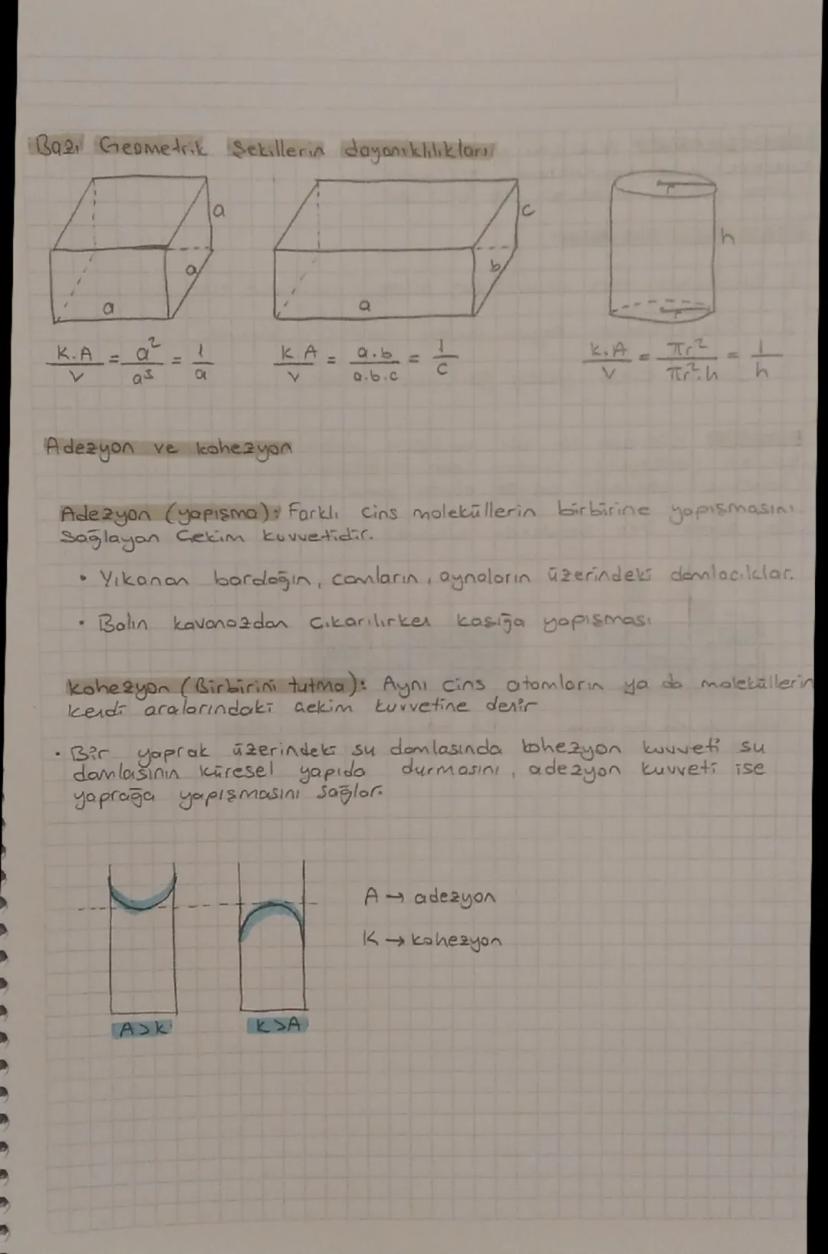 Bazı Geometrik Şekillerin dayanıklılıkları
a
a
a
c
b
a
h
r
r
K.A/V = a²/a³ = 1/a
K.A/V = a.b/a.b.c = 1/c
K.A/V = πr²/πr².h = 1/h
Adezyon ve kohezyon
Adezyon (yapışma): Farklı cins moleküllerin birbirine yapışmasını
Sağlayan Çekim kuvvetidir.
• Yıkanan bardağın, camların, aynaların üzerindeki damlacıklar.
• Balın kavanozdan çıkarılırken kaşığa yapışması
Kohezyon (Birbirini tutma): Aynı cins atomların ya da moleküllerin
kendi aralarındaki çekim kuvvetine denir
• Bir yaprak üzerindeki su damlasında kohezyon kuvveti su
damlasının küresel yapıda durmasını, adezyon kuvveti ise
yaprağa yapışmasını sağlar.
A → adezyon
K → kohezyon
A>K
K>A